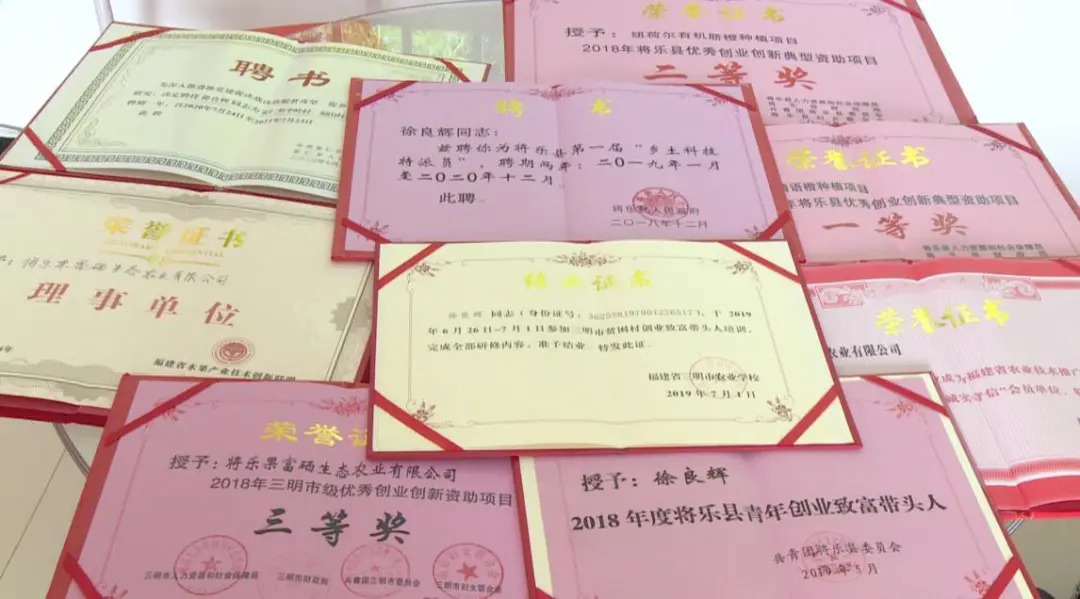 聘书
荣誉证书
授予：纽荷尔有机脐橙种植项目
2018年将乐县优秀创业创新典型资助项目
二等奖
聘 书
徐良辉同志：
兹聘你为将乐县第一届“乡土科技
特派员”，聘期两年：二〇一九年一月
至二〇二〇年十二月。
此聘
将乐县人民政府
二〇一八年十二月
荣誉证书
橙种植项目
年将乐县优秀创业创新典型资助项目
一等奖
将乐县人力资源和社会保障局
荣誉证书
将乐果富硒生态农业有限公司
理事单位
福建省水果产业技术创新联盟
结业证书
徐良辉 同志（身份证号：
），于 2019
年6月26日-7月1日参加三明市贫困村创业致富带头人培训，
完成全部研修内容，准予结业。特发此证。
福建省三明市农业学校
2019年7月1日
荣誉证书
农业有限公司
成为福建省农业技术推广
诚实守信”会员单位，
荣誉证
授予：将乐果富硒生态农业有限公司
2018年三明市级优秀创业创新资助项目
三等奖
三明市人力资源和社会保障局
三明市财政局
共青团三明市委员会
三明市妇女联合会
授予：徐良辉
2018 年度将乐县青年创业致富带头人
共青团将乐县委员会
2019年5月